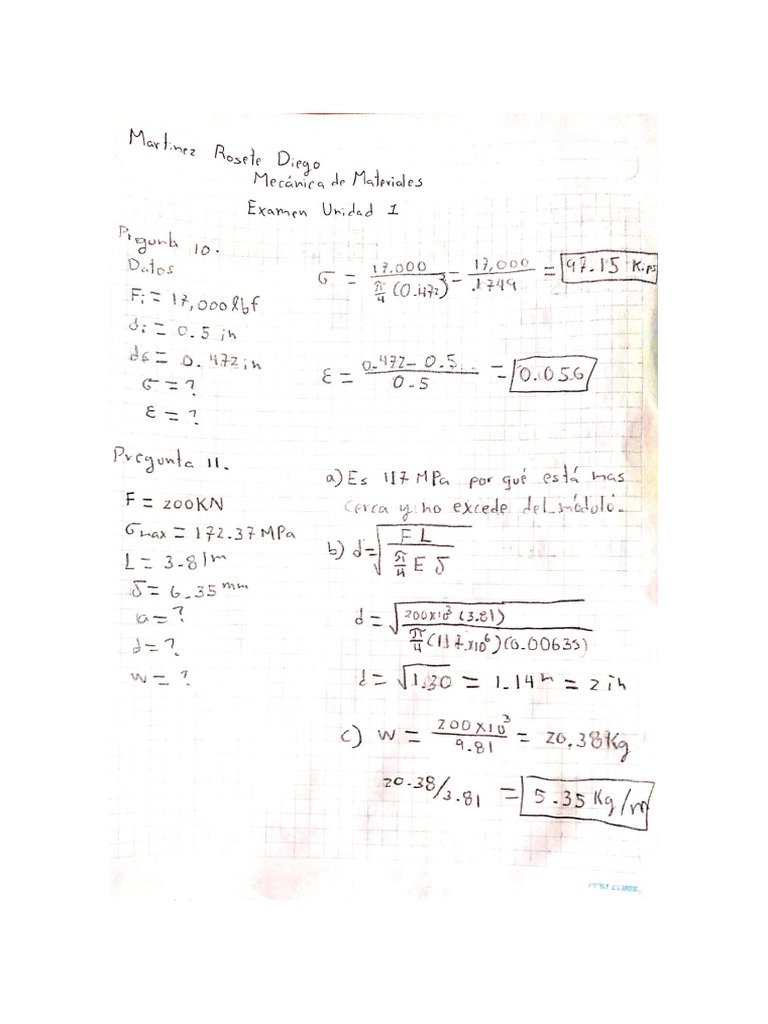 Martinez Rosete Diego
Mecánica de Materiales
Examen Unidad 1
Pregunta 10.
Datos
Fi = 17,000 lbf
di = 0.5 in
df = 0.472 in
σ = ?
ε = ?
σ = 17.000 / π/4 (0.472)² = 17,000 / .1749 = 97.15 Kips
ε = 0.472 - 0.5 / 0.5 = 0.056
Pregunta 11.
F = 200KN
σmax = 172.37 MPa
L = 3.81m
δ = 6.35 mm
a = ?
d = ?
w = ?
a) Es 117 MPa por qué está mas
cerca y no excede del módulo.
b) d = √ F L / π/4 E δ
d = √ 200x10³ (3.81) / π/4 (117x10⁶)(0.00635)
d = √1.30 = 1.14 m = 2 in
c) W = 200x10³ / 9.81 = 20.38 Kg
20.38/3.81 = 5.35 Kg/m
FIRST CLASS